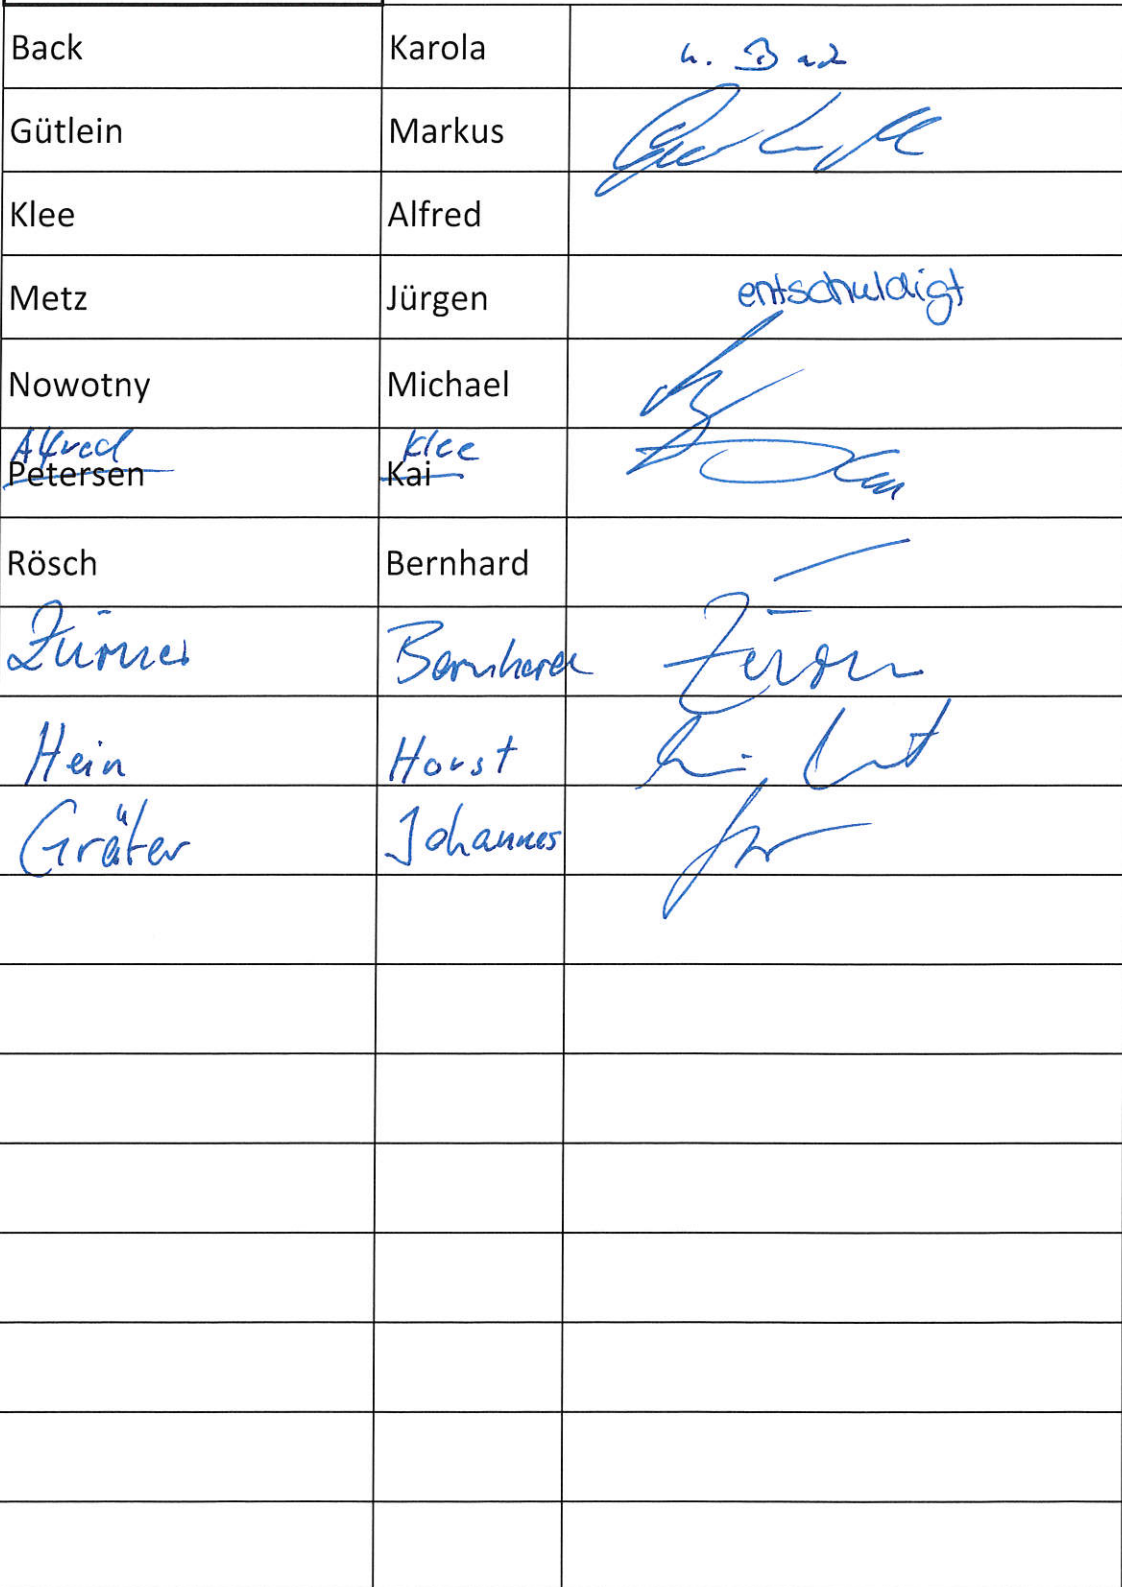 Back Karola K. Back
Gütlein Markus
Klee Alfred
Metz Jürgen entschuldigt
Nowotny Michael
Alfred Klee
Petersen Kai
Rösch Bernhard
Zürner Bernhard
Hein Horst
Gräter Johannes